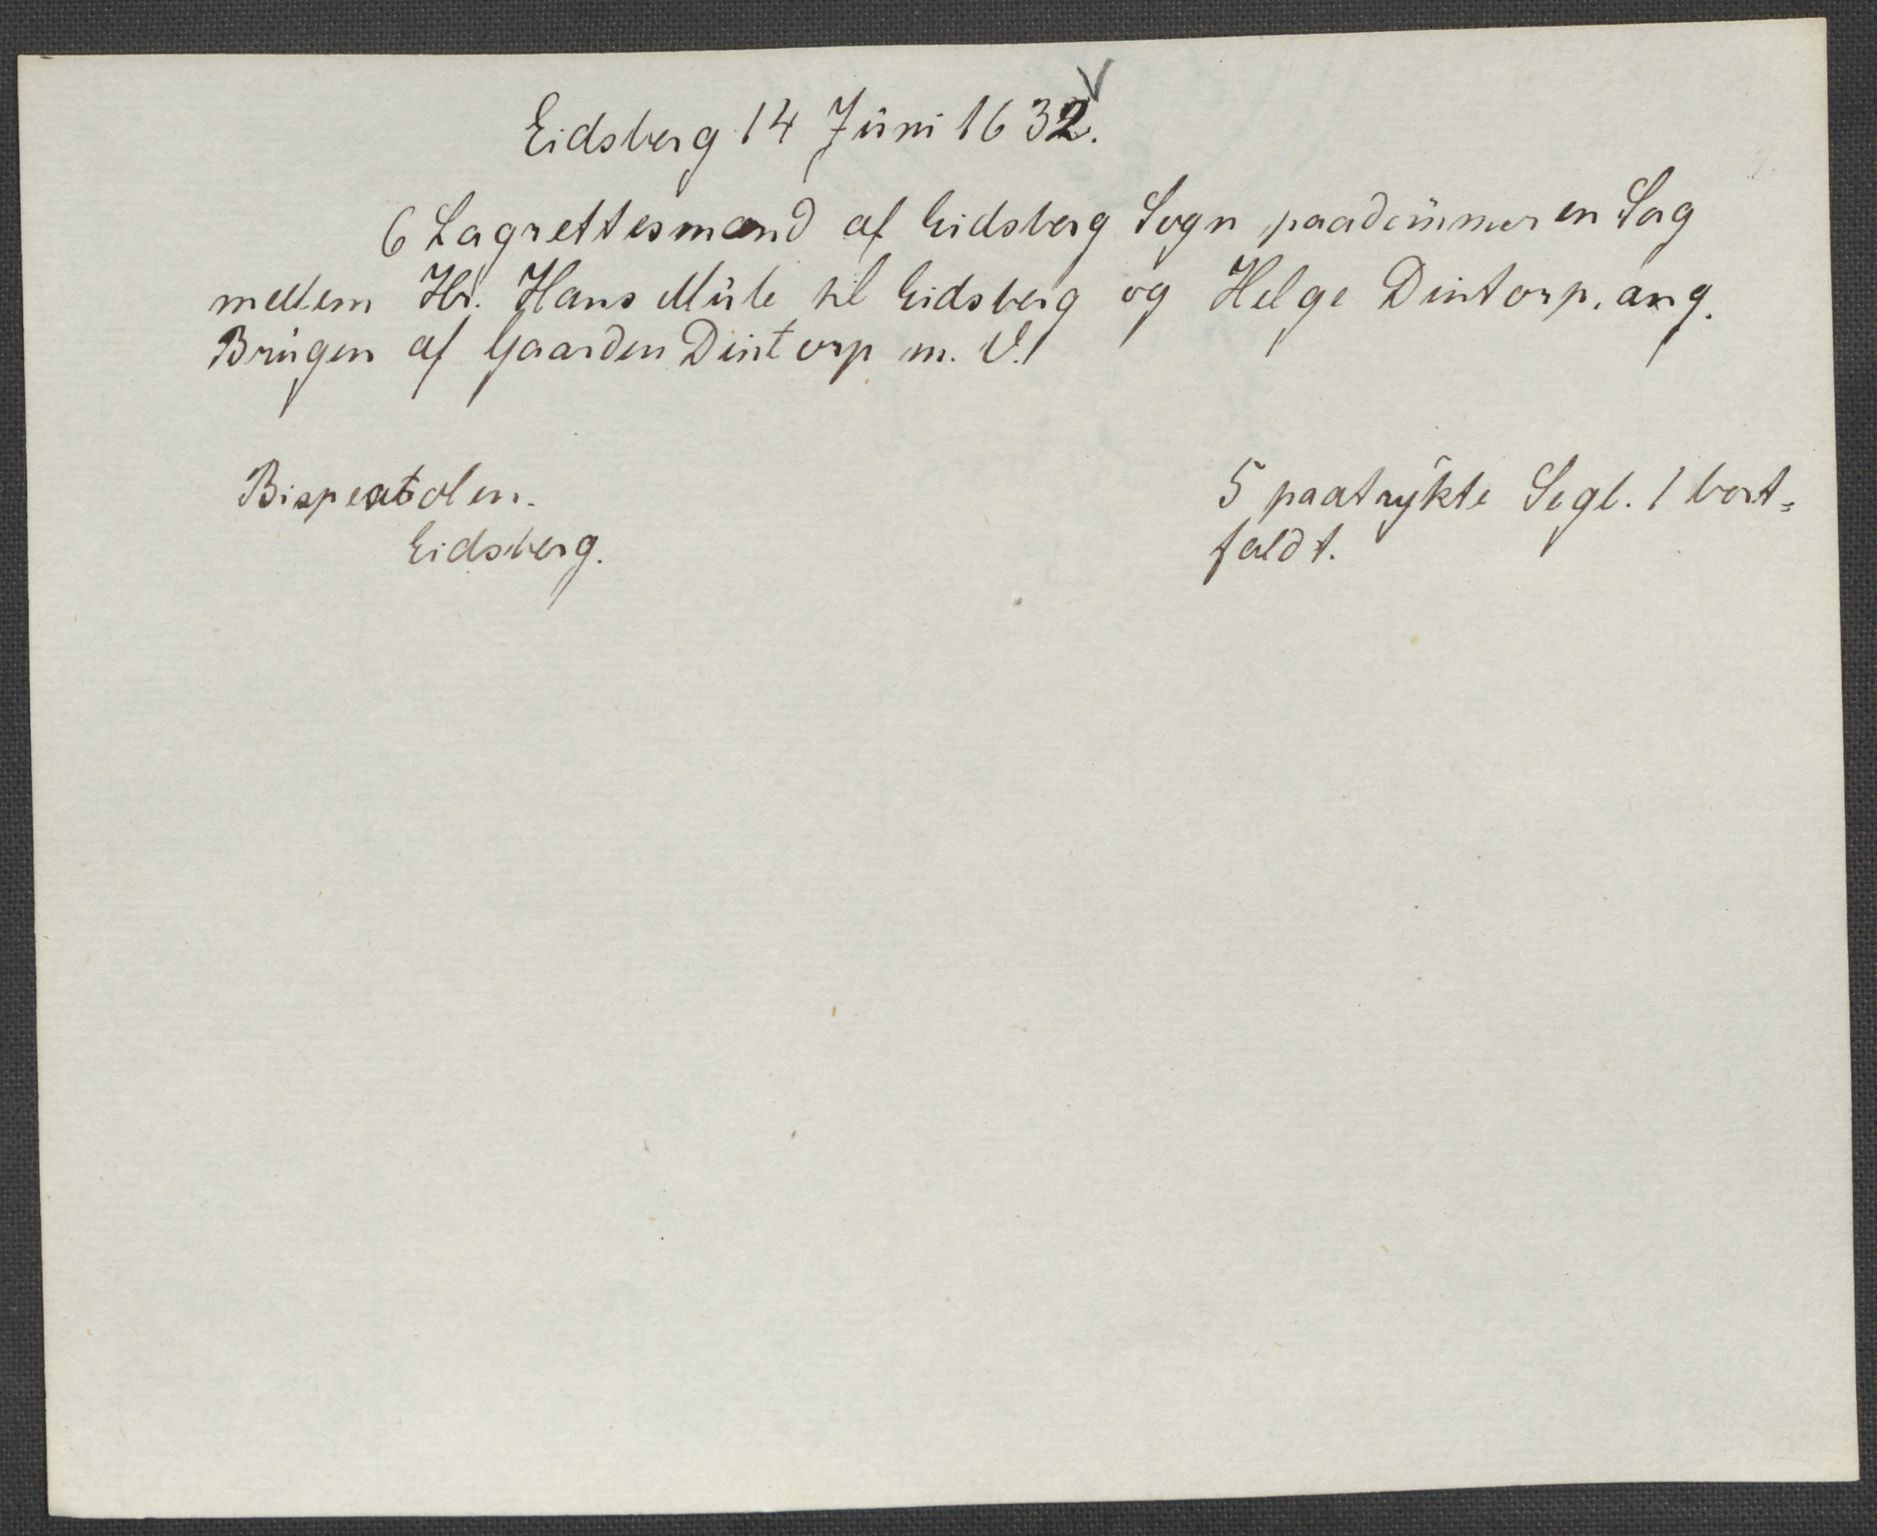 Eidsberg 14 Juni 1632.
6 Lagrettesmænd af Eidsberg Sogn paadømmer en Sag
mellem Hr. Hans Mule til Eidsberg og Helge Dintorp, ang.
Brugen af Gaarden Dintorp m. V.
Bispestolen.
Eidsberg.
5 paatrykte Segl. 1 bort-
faldt.